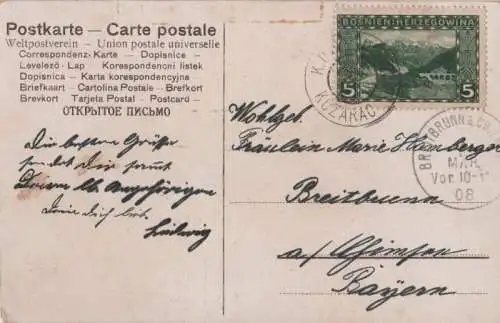 Postkarte — Carte postale
Weltpostverein – Union postale universelle
Correspondenz-Karte — Dopisnice
Levelező-Lap — Korespondencni listek
Dopisnica — Karta korespondencyjna
Briefkaart — Cartolina Postale — Brefkort
Brevkort — Tarjeta Postal — Postcard
ОТКРЫТОЕ ПИСЬМО
Die besten Grüße
sendet Dir samt
Deinen lb. Angehörigen
Dein Dich lieb.
Ludwig
BOSNIEN-HERZEGOWINA
5 5
KOZARAC
Wohlgeb.
Fräulein Marie Hamberger
Breitbrunn
a/Chimsee
Bayern
MAR
Vor. 10-11
08